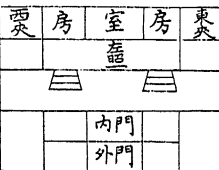 西夾 房 室 房 東夾
內門
外門